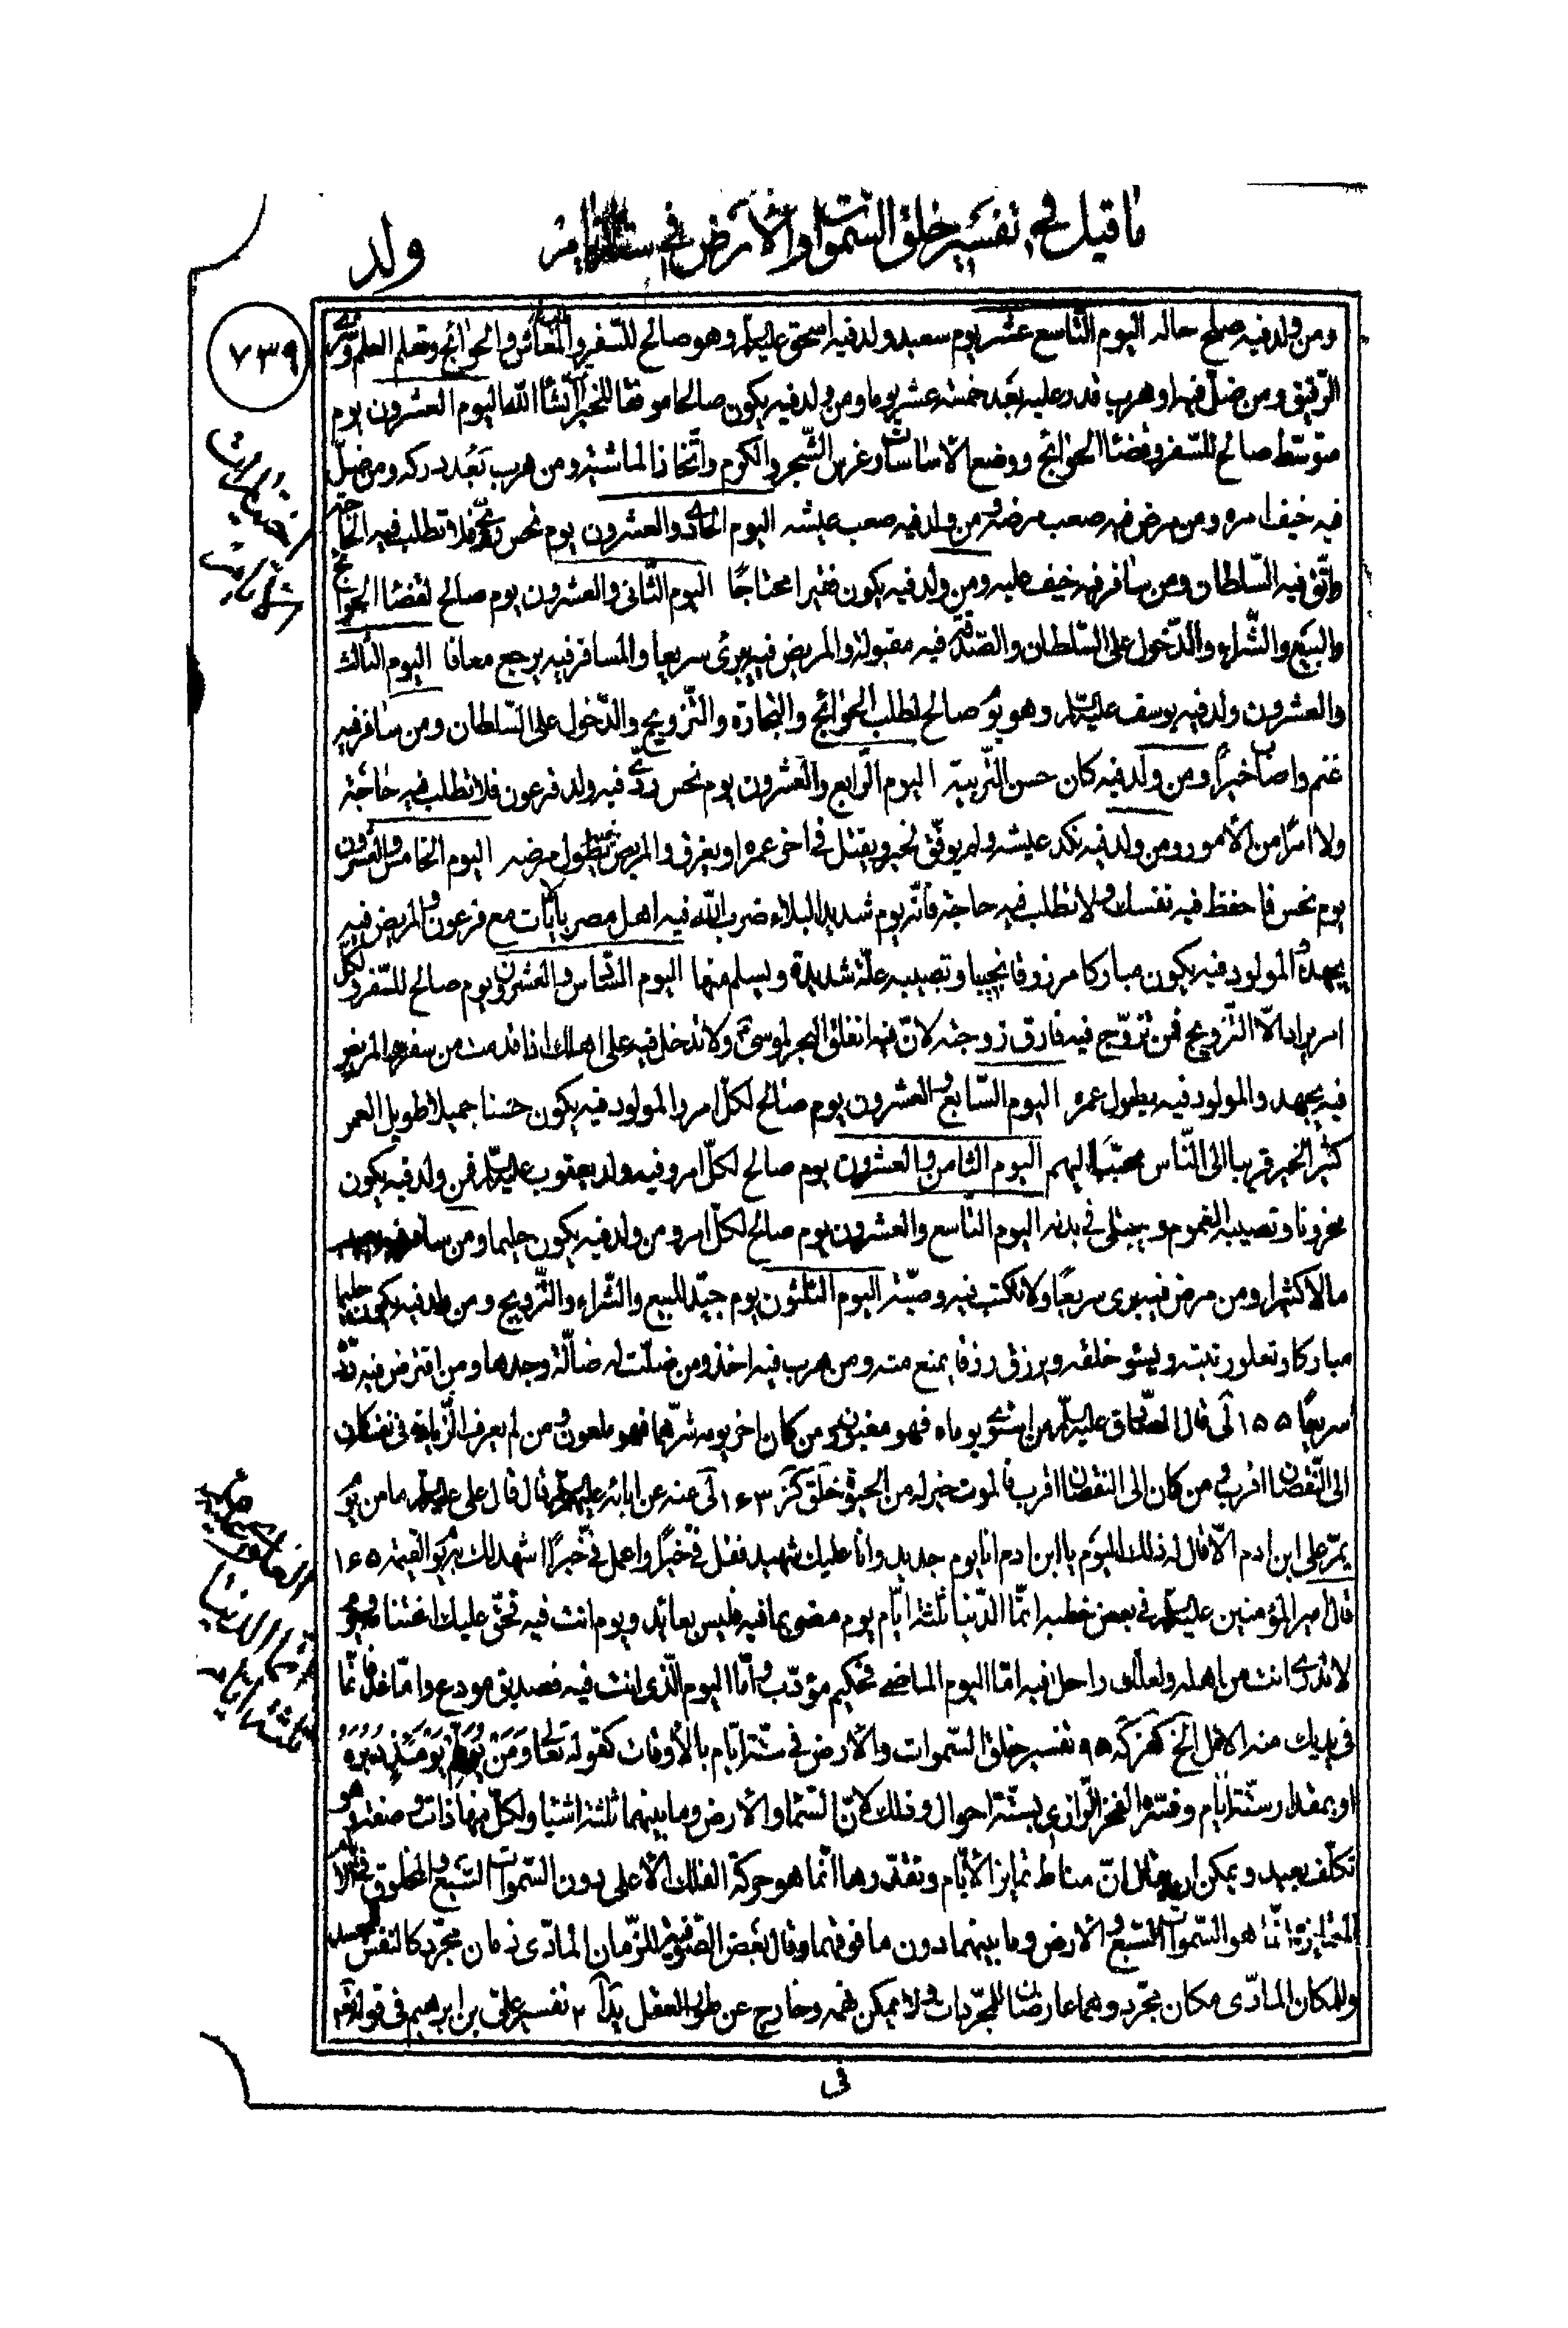 ما قيل في تفسير خلق السموات والأرض في ستة أيام
ولد
٧٣٩
ومن ولد فيه صلح حاله اليوم التاسع عشر يوم سعيد ولد فيه اسحق عليه السلم وهو صالح للسفر والمعاش والحوائج وتعلم العلم وشرى
الرقيق ومن ضل فيه او هرب قدر عليه بعد خمسة عشر يوما ومن ولد فيه يكون صالحا موفقا للخير انشاء الله اليوم العشرون يوم
متوسط صالح للسفر وقضاء الحوائج ووضع الاساسات وغرس الشجر والكرم واتخاذ الماشية ومن هرب بعد دركه ومن ضل
فيه خيف امره ومن مرض فيه صعب مرضه ومن ولد فيه صعب عيشه اليوم الحادي والعشرون يوم نحس فلا تطلب فيه الحاجة
واتق فيه السلطان ومن سافر فيه خيف عليه ومن ولد فيه يكون فقيرا محتاجا اليوم الثاني والعشرون يوم صالح لقضاء الحوائج
والبيع والشراء والدخول على السلطان والصدقة فيه مقبولة والمريض فيه يبرئ سريعا والمسافر فيه يرجع معافا اليوم الثالث
والعشرون ولد فيه يوسف عليه السلم وهو يوم صالح لطلب الحوائج والتجارة والتزويج والدخول على السلطان ومن سافر فيه
غنم واصاب خيرا ومن ولد فيه كان حسن التربية اليوم الرابع والعشرون يوم نحس ردي فيه ولد فرعون فلا تطلب فيه حاجة
ولا امرا من الأمور ومن ولد فيه نكد عيشه ولم يوفق لخير ويقتل في اخر عمره او يغرق والمريض يطول مرضه اليوم الخامس والعشرون
يوم نحس فاحفظ فيه نفسك ولا تطلب فيه حاجة فانه يوم شديد البلاء ضرب الله فيه اهل مصر بالآيات مع فرعون والمريض فيه
يجهد والمولود فيه يكون مباركا مرزوقا نجيبا وتصيبه علة شديدة ويسلم منها اليوم السادس والعشرون يوم صالح للسفر ولكل
امر يراد الا التزويج فمن تزوج فيه فارق زوجته لان فيه انفلق البحر لموسى ع ولا تدخل فيه على اهلك اذا قدمت من سفر والمريض
فيه يجهد والمولود فيه يطول عمره اليوم السابع والعشرون يوم صالح لكل امر والمولود فيه يكون حسنا جميلا طويل العمر
كثير الخير قريبا الى الناس محببا اليهم اليوم الثامن والعشرون يوم صالح لكل امر وفيه ولد يعقوب عليه السلم فمن ولد فيه يكون
محزونا وتصيبه الغموم ويبتلى في بدنه اليوم التاسع والعشرون يوم صالح لكل امر ومن ولد فيه يكون حليما ومن سافر فيه يصيب
مالا كثيرا ومن مرض فيه يبرى سريعا ولا تكتب فيه وصية اليوم الثلثون يوم جيد للبيع والشراء والتزويج ومن ولد فيه يكون حليما
مباركا وتعلو رتبته ويسو خلقه ويرزق رزقا يمنع منه ومن هرب فيه اخذ ومن ضلت له ضالة وجدها ومن اقترض فيه
سريعا ١٥٥ لى قال الصادق عليه السلم من استوى يوماه فهو مغبون ومن كان اخر يومه شرهما فهو ملعون ومن لم يعرف الزيادة في نفسه كان
الى النقصان اقرب ومن كان الى النقصان اقرب فالموت خير له من الحيوة خلق كز ١٦٣ لى عنه عن ابائه عليهم السلم قال قال على عليه السلم ما من يوم
يمر على ابن ادم الا قال له ذلك اليوم يا ابن ادم انا يوم جديد وانا عليك شهيد فقل في خيرا واعمل في خيرا اشهد لك به يوم القيمة ١٦٥
قال امير المؤمنين عليه السلم في بعض خطبه انما الدنيا ثلثة ايام يوم مضى بما فيه فليس بعائد ويوم انت فيه تحق عليك اغتنامه ويوم
لا تدرى انت من اهله ولعلك راحل فيه اما اليوم الماضى فحكيم مؤدب واما اليوم الذى انت فيه فصديق مودع واما غدا فانما
في يديك منه الامل الخ ٩٥ تفسير خلق السموات والأرض في ستة ايام بالأوقات كقوله تعالى ومن يولهم يومئذ دبره
او بمقدار ستة ايام وفسره الفخر الرازي بستة احوال وذلك لان السماء والارض وما بينهما ثلثة اشياء ولكل منها ذات وصفة وهو
تكلف بعيد ويمكن ان يقال ان مناط تمايز الأيام وتقدرها انما هو حركة الفلك الأعلى دون السموات السبع والمخلوق في الأيام
المتمايزة انما هو السموات السبع والأرض وما بينهما دون ما فوقهما وقال بعض الصوفية للزمان المادى زمان مجرد كالنفس للجسد
وللمكان المادى مكان مجرد وهما عارضان للمجردات ولا يمكن فهمه وخارج عن طور العقل ٢ تفسير على بن ابرهيم في قوله تعالى
انما الدنيا
ثلثة ايام
في